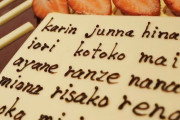 karin junna hina
iori kotoko mai
ayane nanze nana
miona risako rena
oka mi